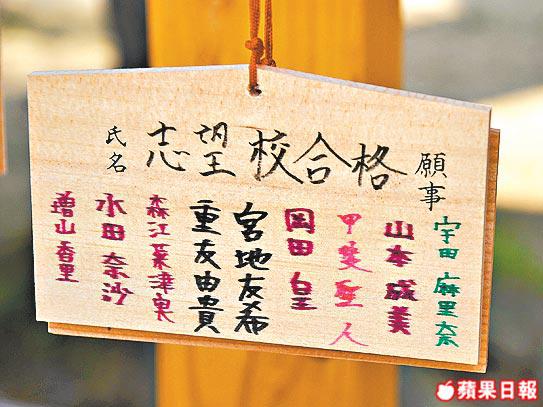 願事
志望校合格
氏名
宇田麻里奈
山本成美
甲斐聖人
岡田皇
宮地友希
重友由貴
森江菜津
水田奈沙
増山香里
蘋果日報